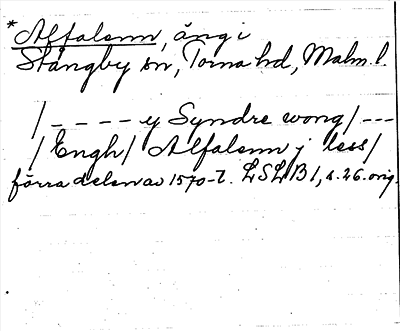 *Alfalunn, äng i
Stångby sn, Torna hd, Malm. l.
/ - - - - y Syndre wong/ - - -
/Engh/ Alfalunn j less/
förra delen av 1570-t. LSLB1, s. 26. orig.